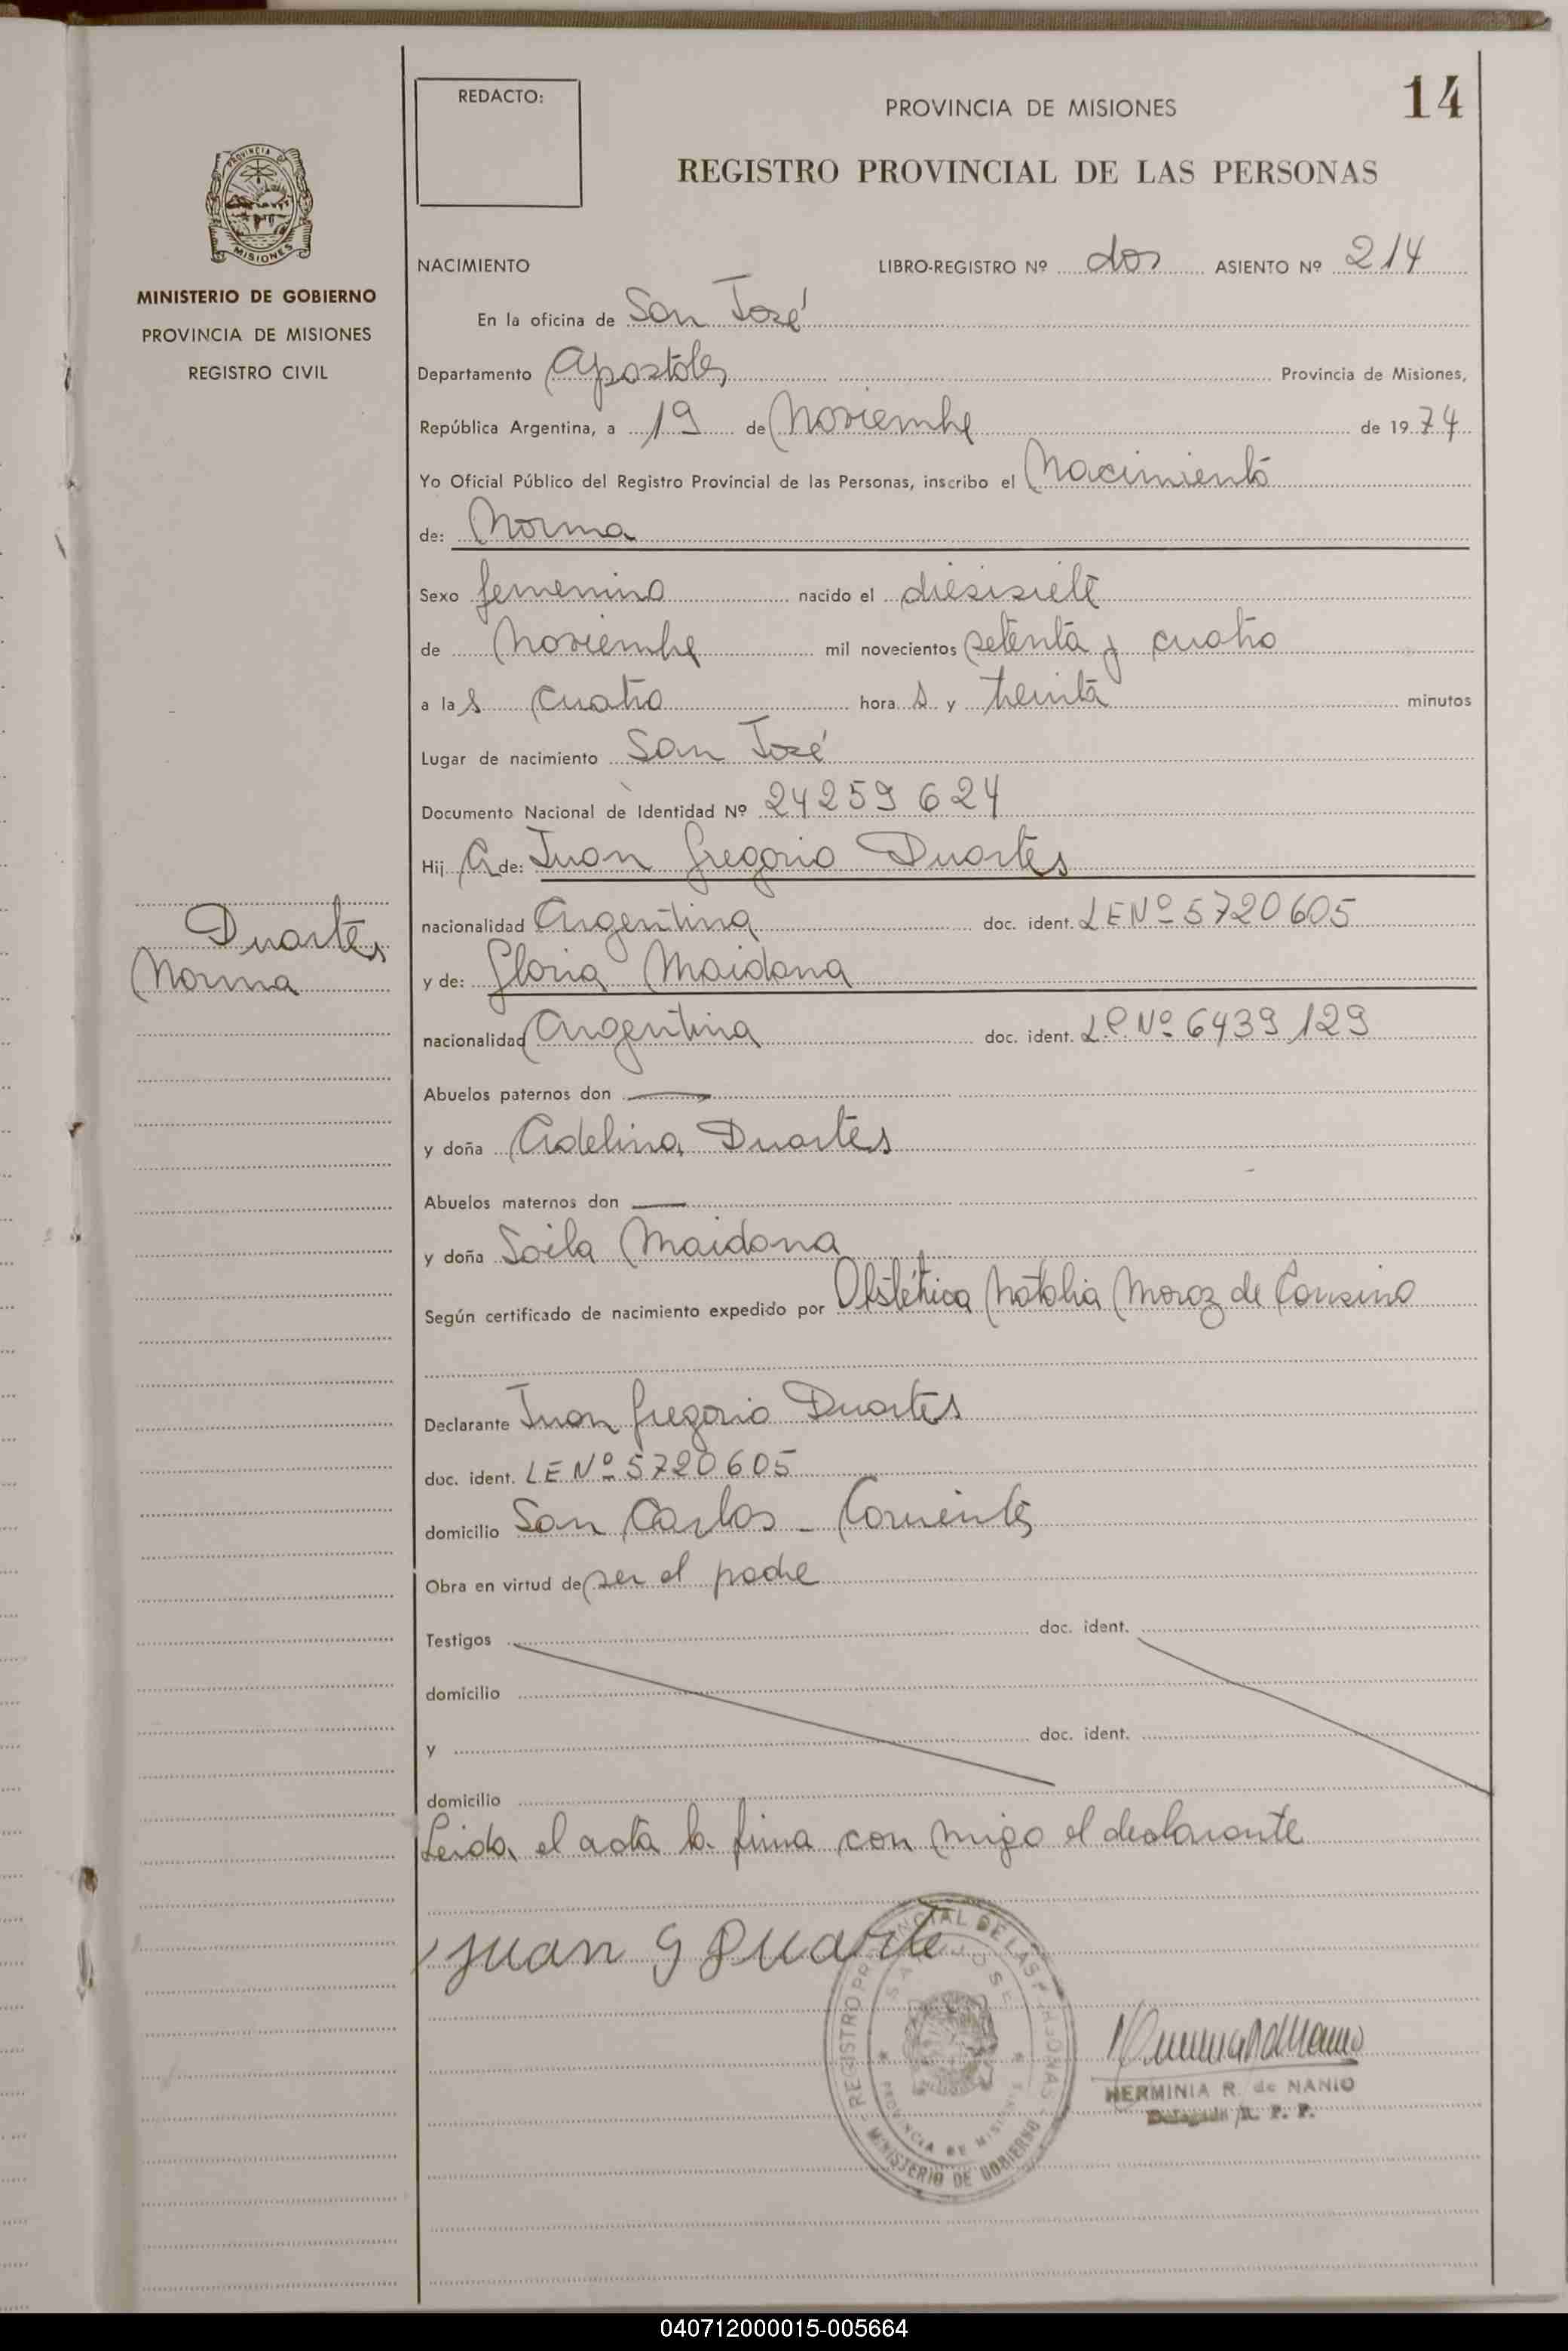 REDACTO:
PROVINCIA DE MISIONES
14
REGISTRO PROVINCIAL DE LAS PERSONAS
PROVINCIA DE
MISIONES
MINISTERIO DE GOBIERNO
PROVINCIA DE MISIONES
REGISTRO CIVIL
NACIMIENTO LIBRO-REGISTRO Nº dos ASIENTO Nº 214
En la oficina de San José
Departamento Apostoles Provincia de Misiones,
República Argentina, a 19 de Noviembre de 1974
Yo Oficial Público del Registro Provincial de las Personas, inscribo el Nacimiento
de: Norma
Sexo femenino nacido el diesisiete
de Noviembre mil novecientos setenta y cuatro
a las cuatro horas y treinta minutos
Lugar de nacimiento San José
Documento Nacional de Identidad Nº 24259624
Hija de: Juan Gregorio Duartes
nacionalidad Argentina doc. ident. LE Nº 5720605
y de: Gloria Maidana
nacionalidad Argentina doc. ident. Nº 6439129
Abuelos paternos don
y doña Adelina Duartes
Abuelos maternos don
y doña Soila Maidana
Según certificado de nacimiento expedido por Obstétrica Natalia Moroz de
Declarante Juan Gregorio Duartes
doc. ident. LE Nº 5720605
domicilio San Carlos - Corrientes
Obra en virtud de ser el padre
Testigos doc. ident.
domicilio
y doc. ident.
domicilio
Leida el acta la firma con migo el declarante
Juan G Duarte
Duartes
Norma
REGISTRO PROVINCIAL DE LAS PERSONAS
SAN JOSE
PROVINCIA DE MISIONES
MINISTERIO DE GOBIERNO
HERMINIA R. de NANIO
Delegada R. P. P.
040712000015-005664